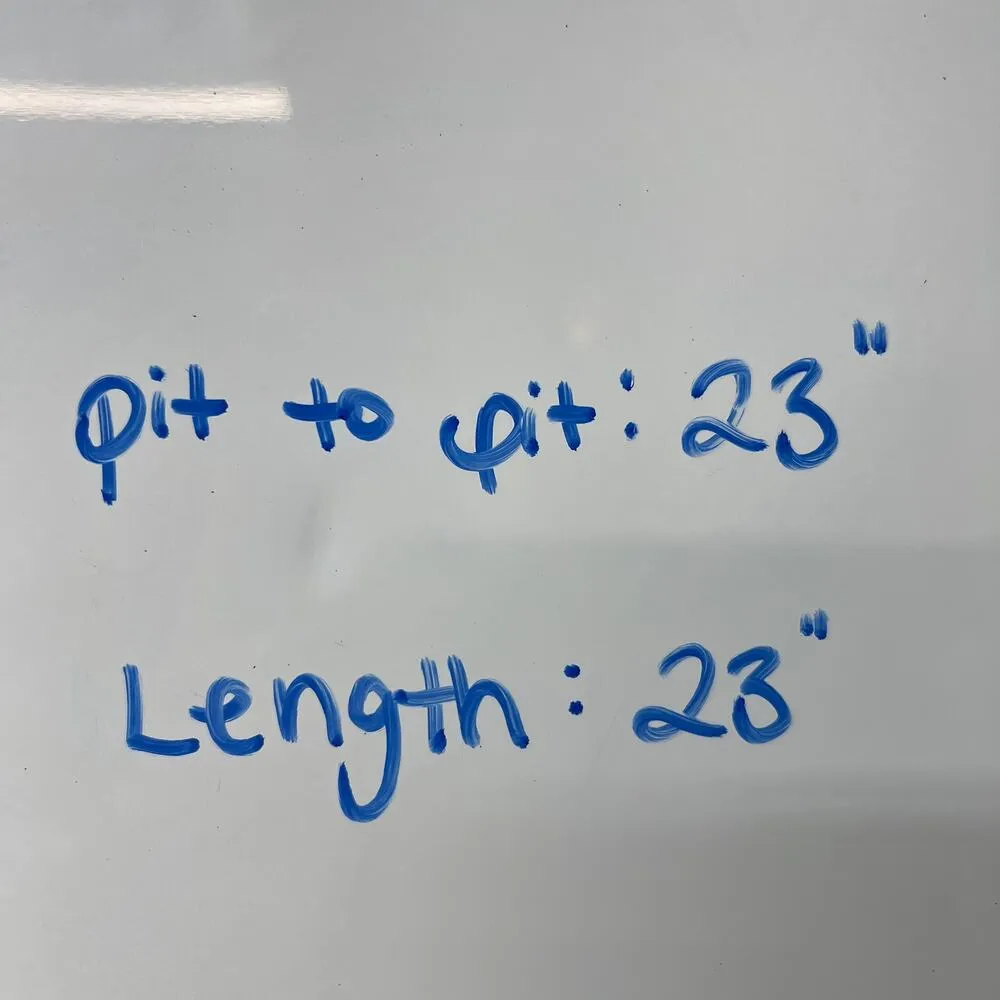 pit to pit: 23"
Length: 23"